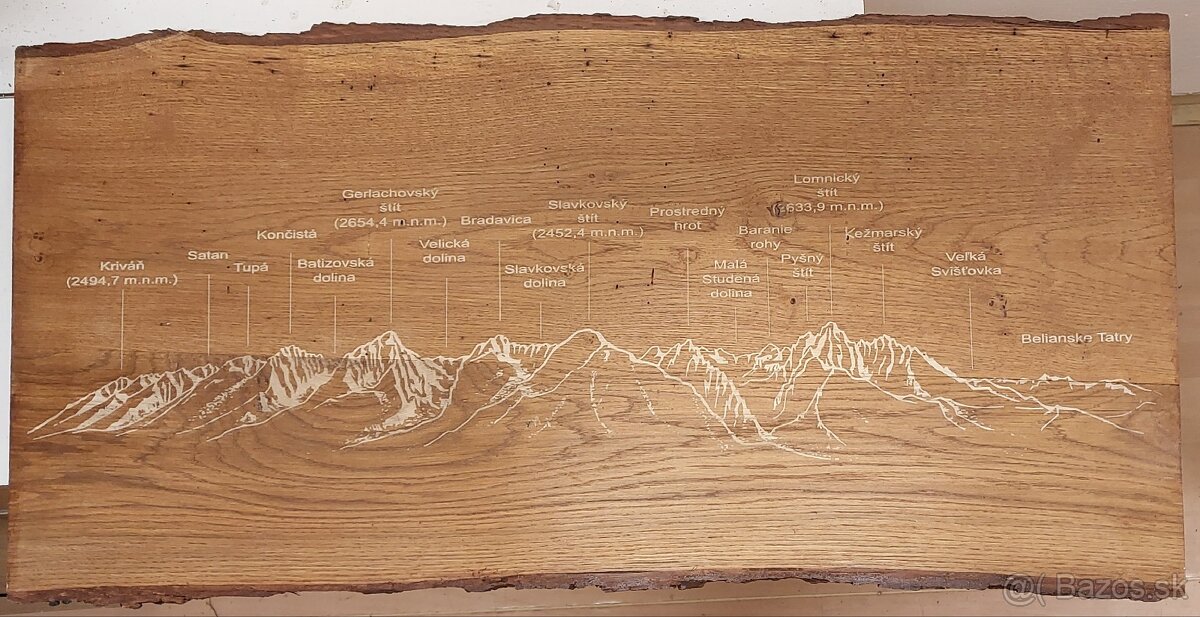 Kriváň
(2494,7 m.n.m.)
Satan
Tupá
Končistá
Batizovská
dolina
Gerlachovský
štít
(2654,4 m.n.m.)
Velická
dolina
Bradavica
Slavkovská
dolina
Slavkovský
štít
(2452,4 m.n.m.)
Prostredný
hrot
Malá
Studená
dolina
Baranie
rohy
Pyšný
štít
Lomnický
štít
(2633,9 m.n.m.)
Kežmarský
štít
Veľká
Svišťovka
Belianske Tatry
@( Bazos.sk